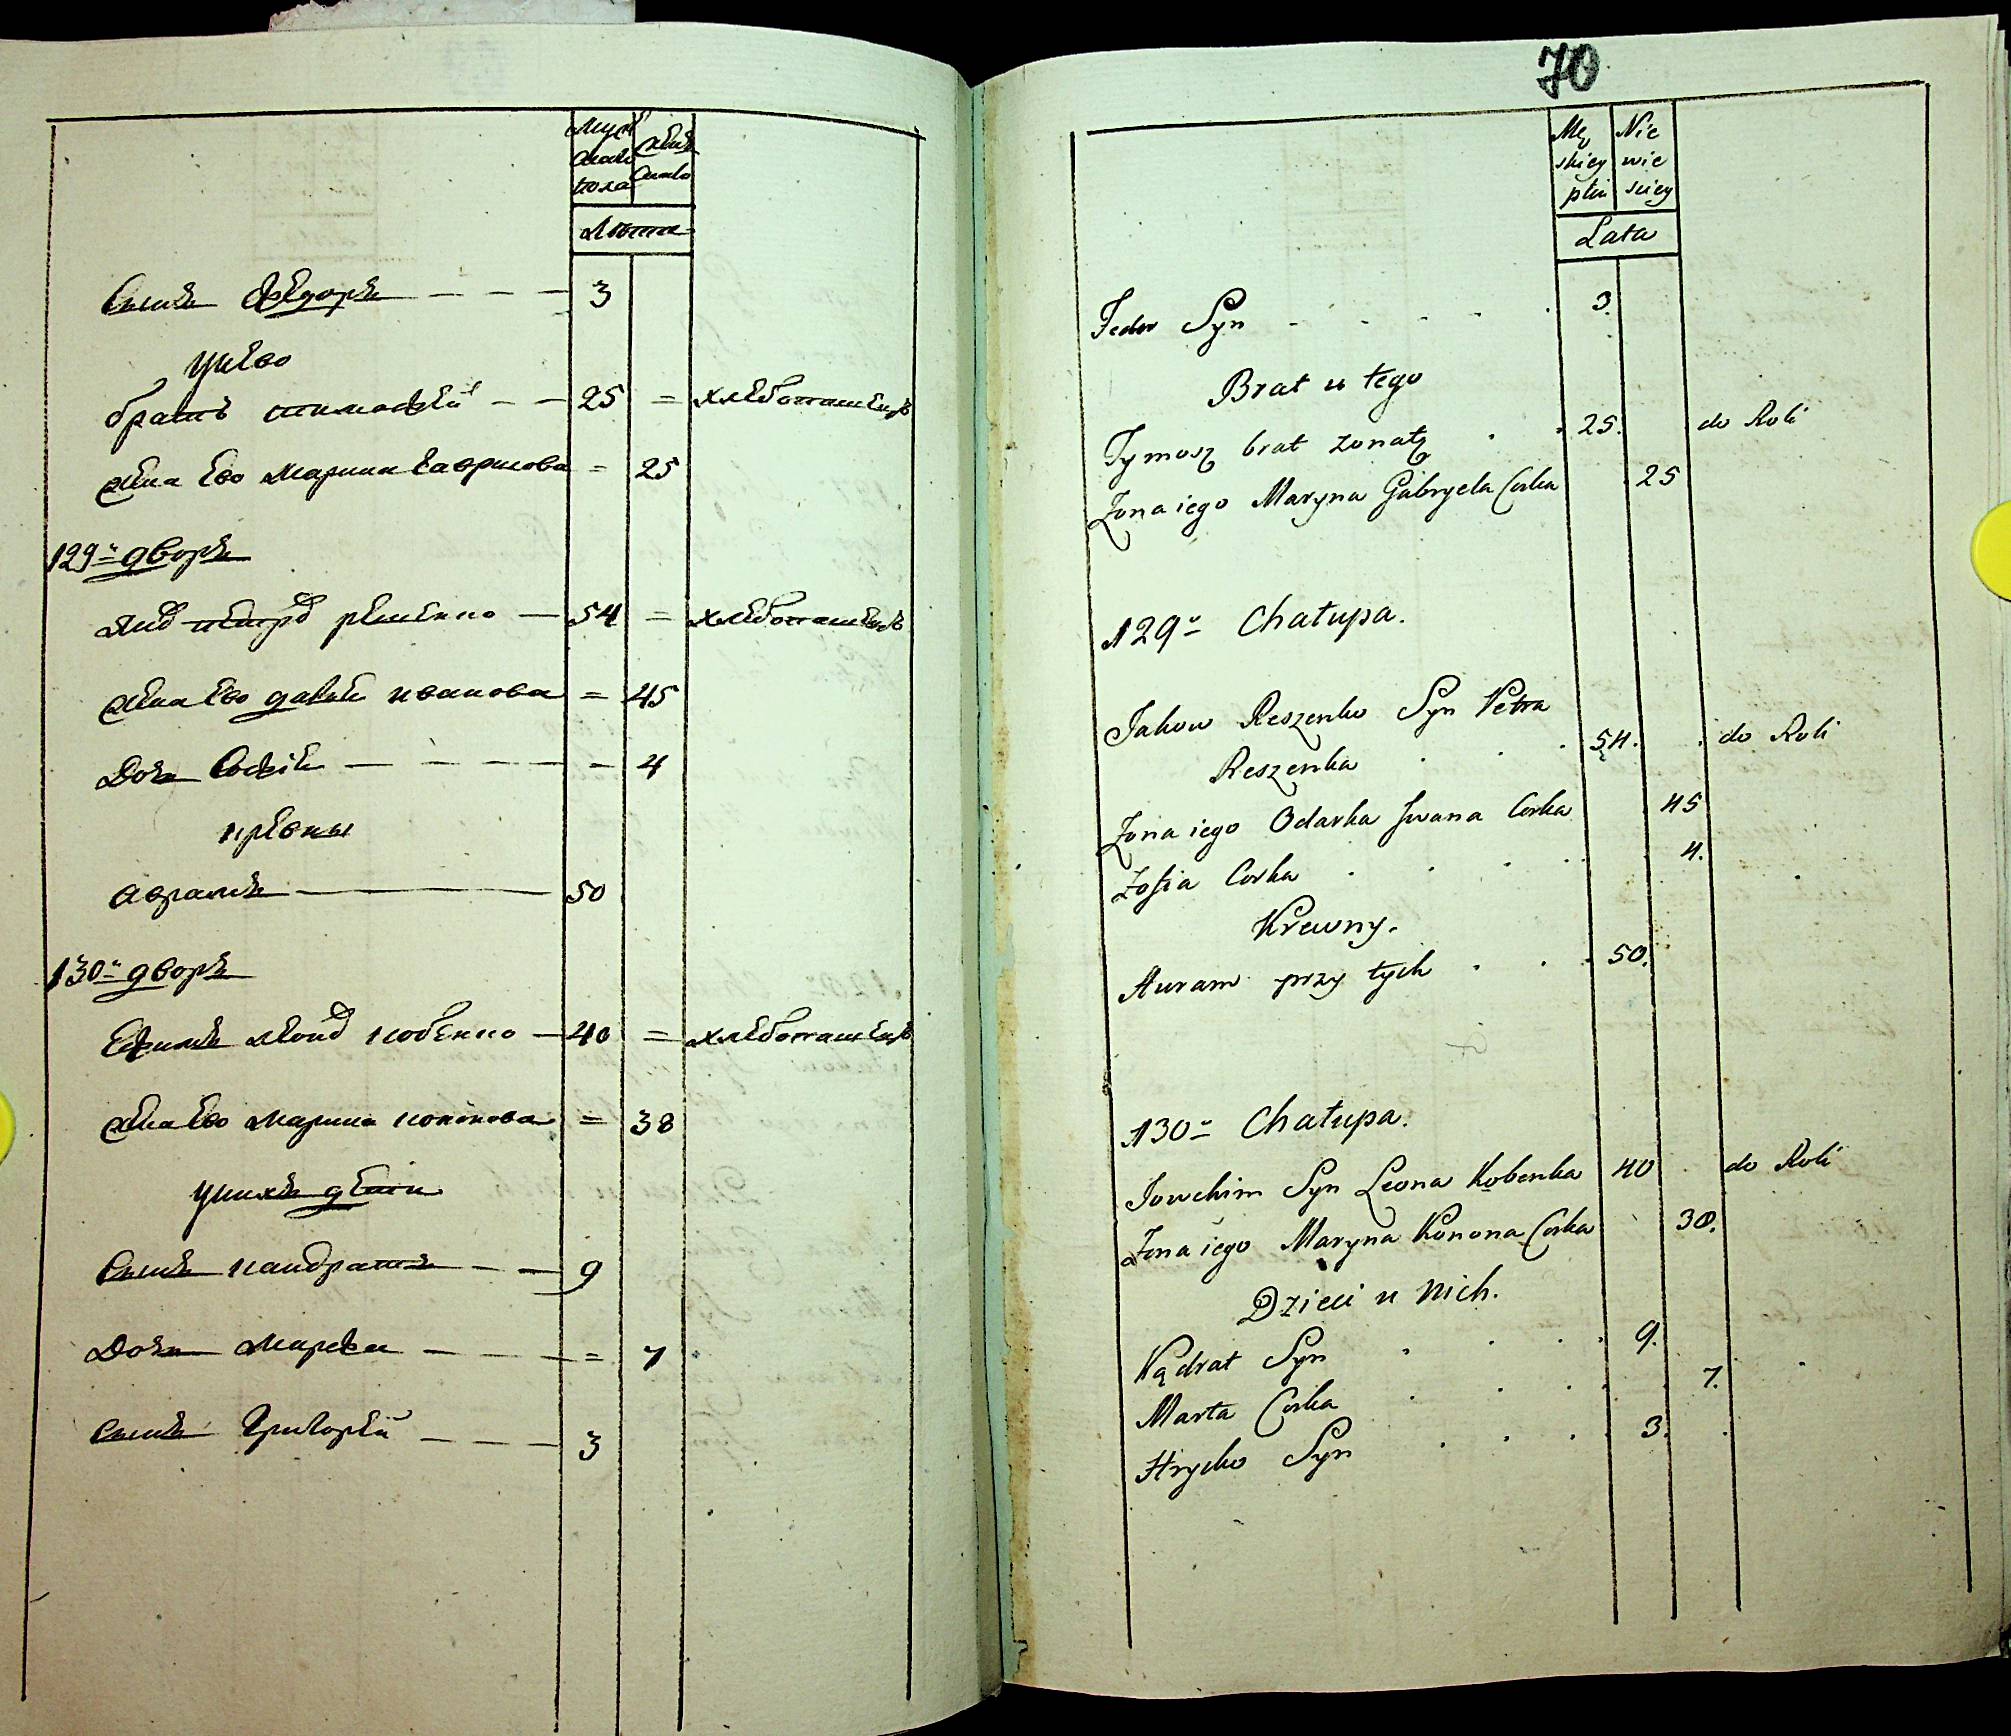 Муж
ска
пола
женс
каго
Лѣта
Сынъ Ѳедоръ 3
У него
братъ Тимоѳей 25 = хлебопашецъ
жена Ево Марина Гаврилова = 25
129й дворъ
петръ решенко 54 = хлебопашецъ
жена Ево дарья иванова = 45
Дочь Софія 4
кревны
аврамъ 50
130й дворъ
Ефимъ леонд кобенко 40 = хлебопашецъ
жена Ево Марина кононова = 38
У нихъ дети
Сынъ кандратъ 9
Дочь Марфа = 7
Сынъ Григорей 3
70
Mę
skiey
płci
Nie
wie
sciey
Lata
Fedor Syn 3.
Brat u tego
Tymosz brat zonaty 25. do Roli
Zona iego Maryna Gabryela Corka 25
129й Chałupa.
Jakow Reszenko Syn Petra
Reszenka 54. do Roli
Zona iego Odarka Jwana Corka 45
Zofia Corka 4.
Krewny.
Auram przy tych 50.
130й Chałupa.
Jowchim Syn Leona Kobenka 40 do Roli
Zona iego Maryna Konona Corka 38.
Dzieci u nich.
Kądrat Syn 9.
Marta Corka 7.
Hrycko Syn 3.